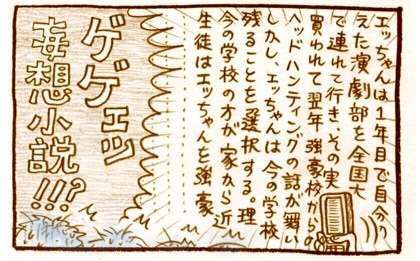 エッちゃんは1年目で自分
えた演劇部を全国大
で連れて行き、その実
買われて翌年強豪校からの
ヘッドハンティングの話が舞い
しかし、エッちゃんは今の学校
残ることを選択する。理
今の学校の方が家から近
生徒はエッちゃんを強豪
ゲゲェッ
妄想小説!!!?